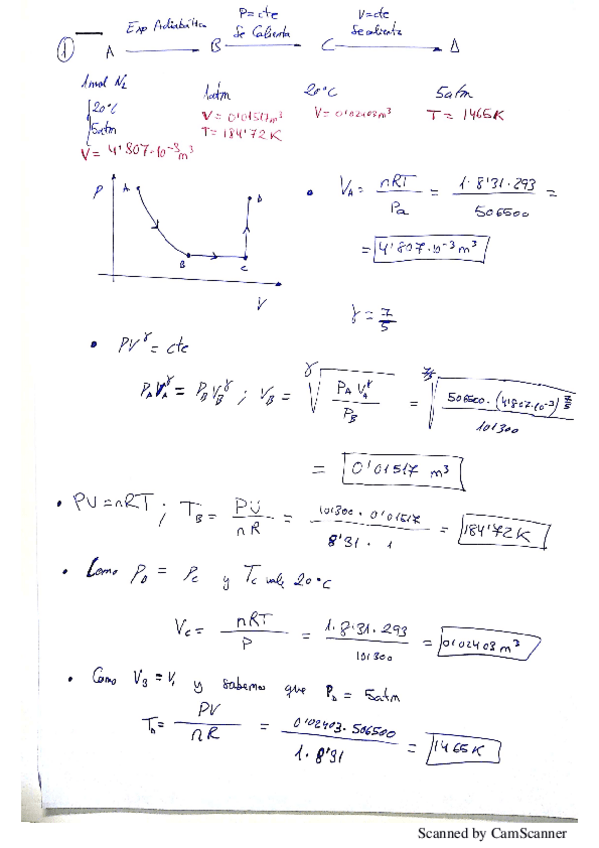 ① A Exp Adiabática B P=cte Se Calienta C V=cte Se calienta D
1 mol N₂ 1atm 20°C 5atm
20°C V = 0'01517m³ V = 0'02403m³ T = 1465K
5atm T = 184'72K
V = 4'807·10⁻³m³
P A B C D V
• V_A = nRT / P_A = 1·8'31·293 / 506500 =
= 4'807·10⁻³ m³
γ = 7/5
• PV^γ = cte
P_A V_A^γ = P_B V_B^γ ; V_B = ^γ√(P_A V_A^γ / P_B) = ^7/5√(506500·(4'807·10⁻³)^7/5 / 101300)
= 0'01517 m³
• PV = nRT ; T_B = PV / nR = 101300 · 0'01517 / 8'31 · 1 = 184'72K
• Como P_B = P_C y T_C vale 20°C
V_C = nRT / P = 1·8'31·293 / 101300 = 0'02403 m³
• Como y sabemos que P_D = 5atm
T_D = PV / nR = 0'02403·506500 / 1·8'31 = 1465K
Scanned by CamScanner